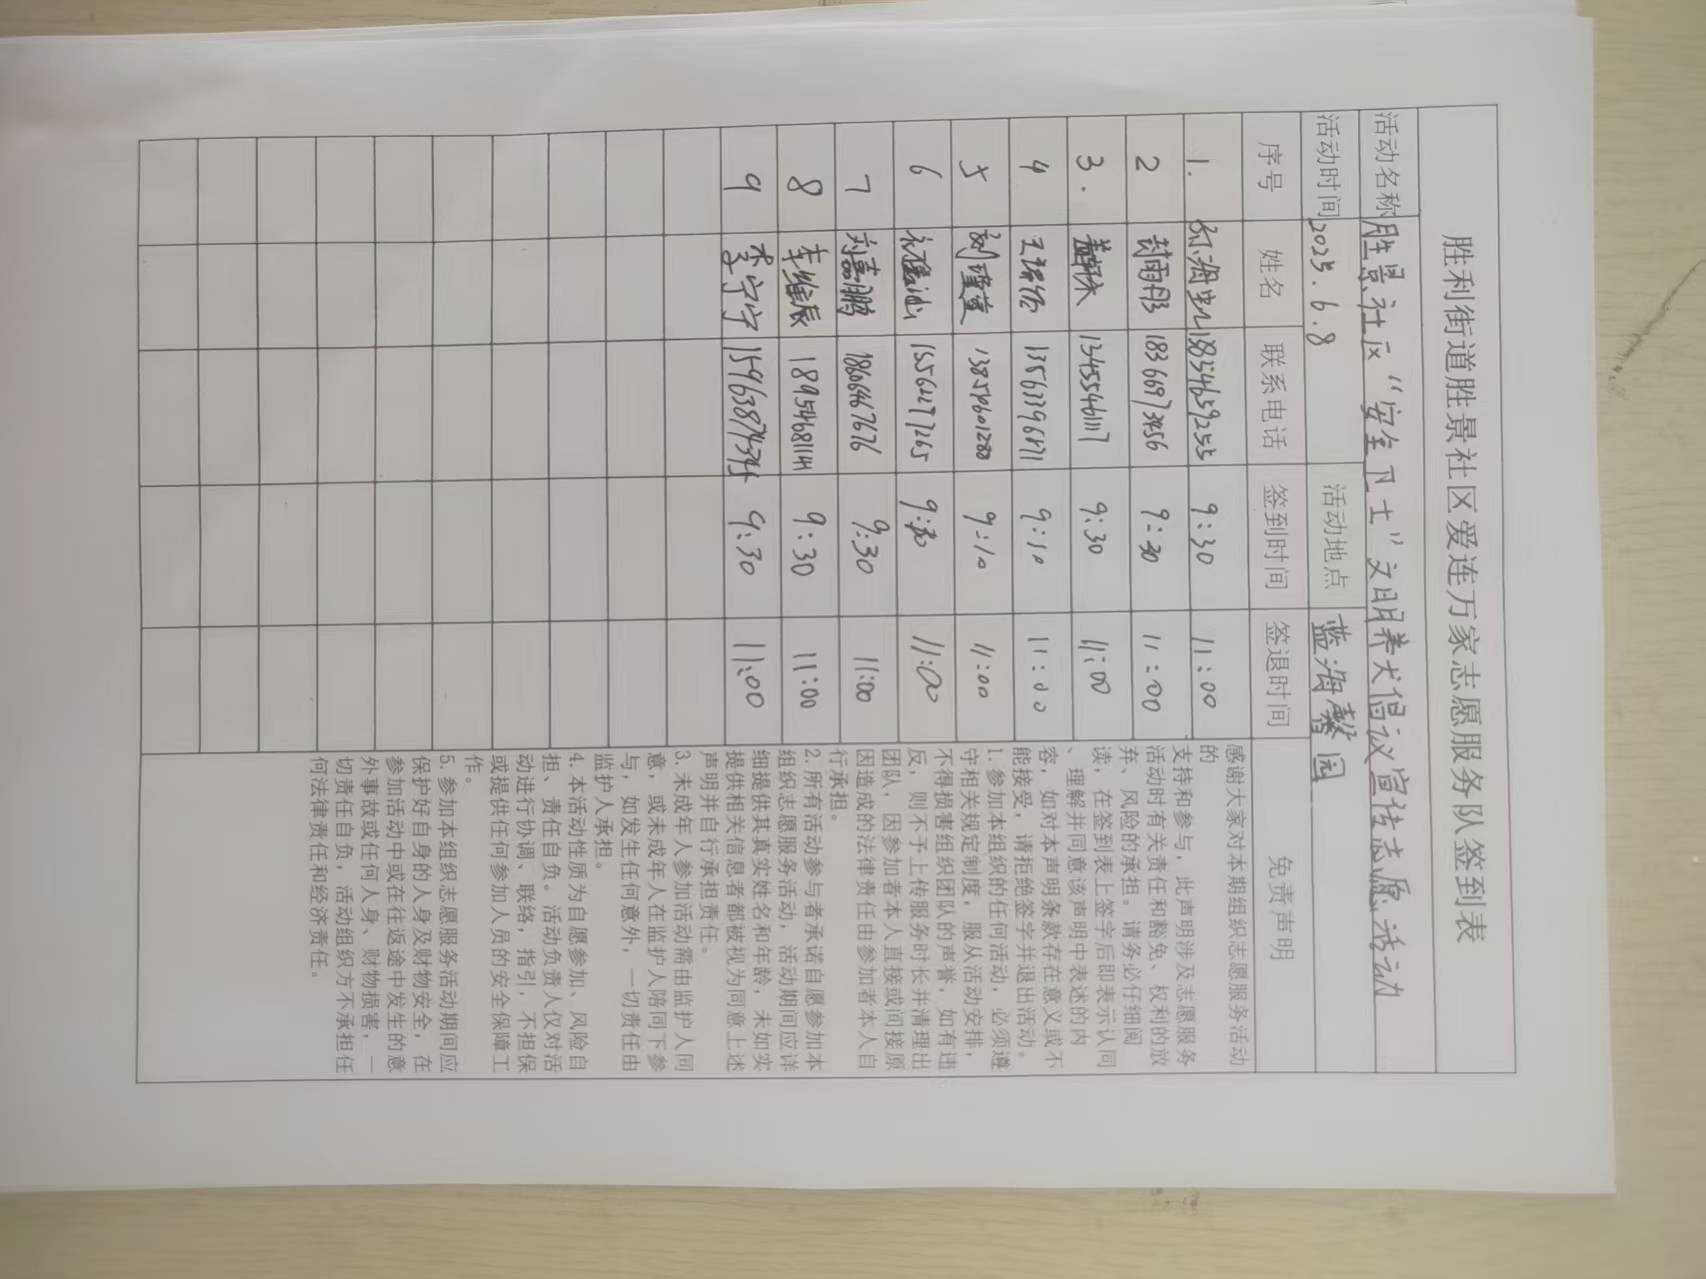 胜利街道胜景社区爱连万家志愿服务队签到表
活动名称 胜景社区“安全卫士”文明养犬倡议宣传志愿活动
活动时间 2025.6.8 活动地点 蓝海馨园
序号 姓名 联系电话 签到时间 签退时间 免责声明
1. 15854659255 9:30 11:00
2 封雨彤 18366973456 9:30 11:00
3. 13455461117 9:30 11:00
4 13561396471 9:10 11:00
5 刘瑾萱 13854601280 9:10 11:00
6 15564277265 9:30 11:00
7 刘嘉鹏 18606467676 9:30 11:00
8 车维辰 18954681141 9:30 11:00
9 李宁宁 15963874345 9:30 11:00
感谢大家对本期组织志愿服务活动
的
支持和参与，此声明涉及志愿服务
活动时有关责任和豁免、权利的放
弃、风险的承担。请务必仔细阅
读，在签到表上签字后即表示认同
、理解并同意该声明中表述的内
容，如对本声明条款存在意义或不
能接受，请拒绝签字并退出活动。
1. 参加本组织的任何活动，必须遵
守相关规定制度，服从活动安排，
不得损害组织团队的声誉，如有违
反，则不予上传服务时长并清理出
团队，因参加者本人直接或间接原
因造成的法律责任由参加者本人自
行承担。
2. 所有活动参与者承诺自愿参加本
组织志愿服务活动，活动期间应详
细提供其真实姓名和年龄，未如实
提供相关信息者都被视为同意上述
声明并自行承担责任。
3. 未成年人参加活动需由监护人同
意，或未成年人在监护人陪同下参
与，如发生任何意外，一切责任由
监护人承担。
4. 本活动性质为自愿参加、风险自
担、责任自负。活动负责人仅对活
动进行协调、联络，指引，不担保
或提供任何参加人员的安全保障工
作。
5. 参加本组织志愿服务活动期间应
保护好自身的人身及财物安全，在
参加活动中或在往返途中发生的意
外事故或任何人身、财物损害，一
切责任自负，活动组织方不承担任
何法律责任和经济责任。